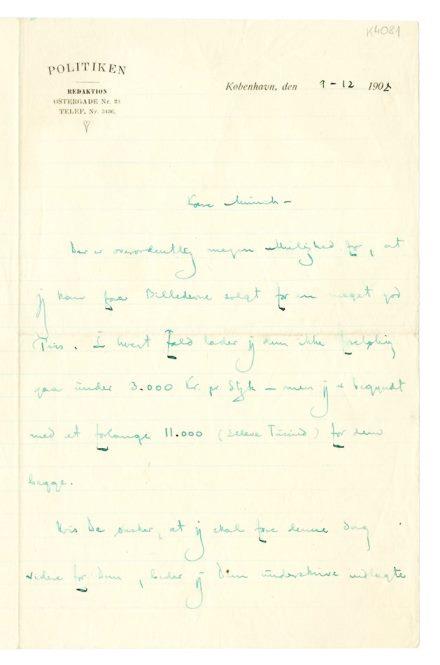 K4081
POLITIKEN
REDAKTION
ØSTERGADE Nr. 23
TELEF. Nr. 3436.
København, den 9-12 1902
Kære Munch -
Der er overordentlig megen Mulighed for, at
jeg kan faa Billederne solgt for en meget god
Pris. I hvert Fald lader jeg dem ikke foreløbig
gaa under 3.000 Kr. pr Styk - men jeg er begyndt
med at forlange 11.000 (Elleve Tusind) for dem
begge.
Hvis De ønsker, at jeg skal føre denne Sag
videre for Dem, beder jeg Dem underskrive indlagte